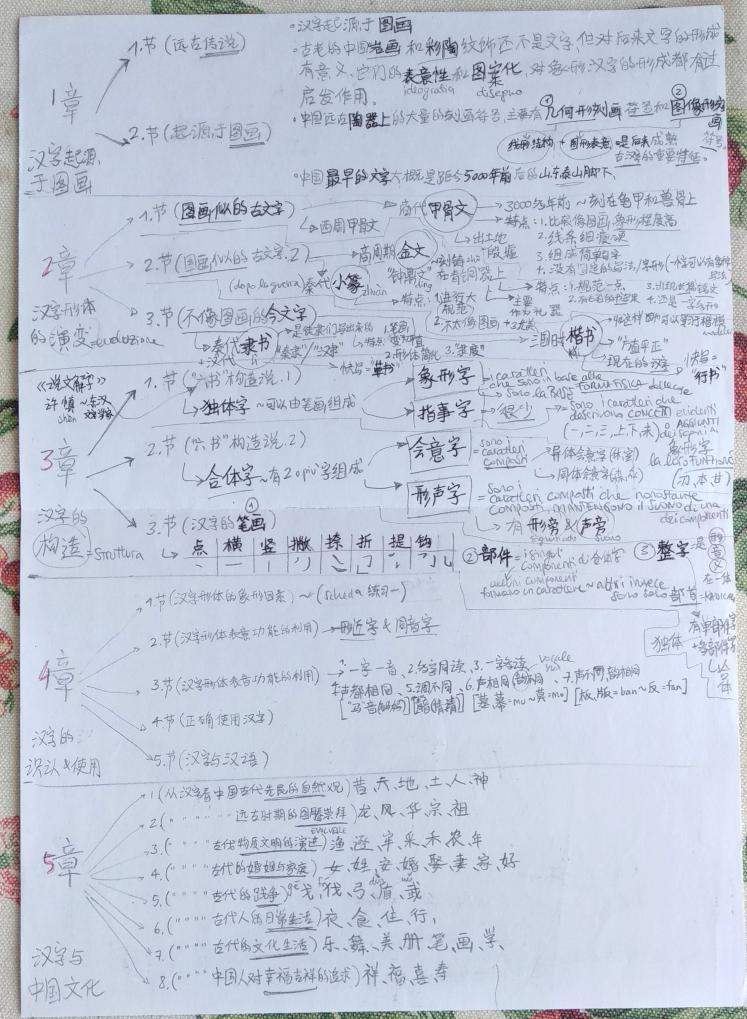 1章
汉字起源于图画
1.节(远古传说)
2.节(起源于图画)
•汉字起源于图画
•古老的中国岩画和彩陶纹饰还不是文字,但对后来文字的形成
有意义。它们的表意性和图案化,对象形汉字的形成都有过
ideografia disegno
启发作用。
•中国远古陶器上的大量的刻画符号,主要有①几何形刻画符号和②图像形刻画符号。
线形结构 + 图形表意 是后来成熟
古汉字的重要特征。
•中国最早的文字大概是距今5000年前后的山东泰山脚下。
2章
汉字形体
的演变=evoluzione
1.节(图画似的古文字)
商代甲骨文
西周甲骨文
3000多年前~刻在龟甲和兽骨上
特点:1.比较像图画,象形程度高
2.线条细瘦硬
3.组成简单句子
出土地
殷墟
2.节(图画似的古文字.2)
商周期金文
"钟鼎文"
在青铜器上
特点:1.规范一点
(dopo la guerra)秦代小篆
zhuàn
特点:1.进行大规范
2.不太像图画
3.节(不像图画的今文字)
秦代隶书
汉代
"秦隶"/"汉隶"
2.形体简化
快写="草书"
三国时楷书
"方直平正"
现在的汉字
快写=
"行书"
《说文解字》
许慎~东汉
shèn
3章
汉字的
构造=struttura
1.节("六书"构造说.1)
独体字~可以由笔画组成
象形字
i caratteri
che sono in base alla FORMA FISICA delle cose
sono la BASE
指事字
很少
sono i caratteri che
descrivono CONCETTI evidenti
(一,二,三,上,下,末) o AGGIUNTI
象形字
(刃,本,甘)
2.节("六书"构造说.2)
合体字~有2 o più字组成
会意字
=sono i
caratteri
composti
异体会意字
同体会意字
形声字
=sono i
caratteri composti che nonostante
composti, MANTENGONO il SUONO di una
dei componenti
有形旁&声旁
significato suono
3.节(汉字的①笔画)
点 横 竖 撇 捺 折 提 钩
②部件=i singoli
componenti di合体字
alcuni componenti
formano un carattere~altri invece
sono solo部首
③整字是形音义
在一体
独体
有单部件字
+多部件字
合体
4章
汉字的
识认&使用
1.节(汉字形体的象形因素)~(scheda 练习一)
2.节(汉字形体表意功能的利用)→形近字&同音字
3.节(汉字形体表音功能的利用)
1.一字一音、2.多字同读、3.一字多读
vocale
4.声都相同、5.调不同、6.声相同韵不同、7.声不同韵相同
["马"音:妈吗][睛情精][墓慕=mu~莫=mo][板,版=ban~反=fan]
4.节(正确使用汉字)
5.节(汉字与汉语)
5章
汉字与
中国文化
1.(从汉字看中国古代先民的自然观)昔、天、地、土、人、神
2.(" " " " 远古时期的图腾崇拜)龙、凤、华、宗、祖
3.(" " " " 古代物质文明的演进)渔、逐、牢、采、禾、农、年
4.(" " " " 古代的婚姻与家庭)女、姓、安、婚、娶、妻、家、好
5.(" " " " 古代的战争)戈、伐、弓、盾、武
6.(" " " " 古代人的日常生活)衣、食、住、行、
7.(" " " " 古代的文化生活)乐、舞、美、册、笔、画、学、
8.(" " " " 中国人对幸福吉祥的追求)祥、福、喜、寿